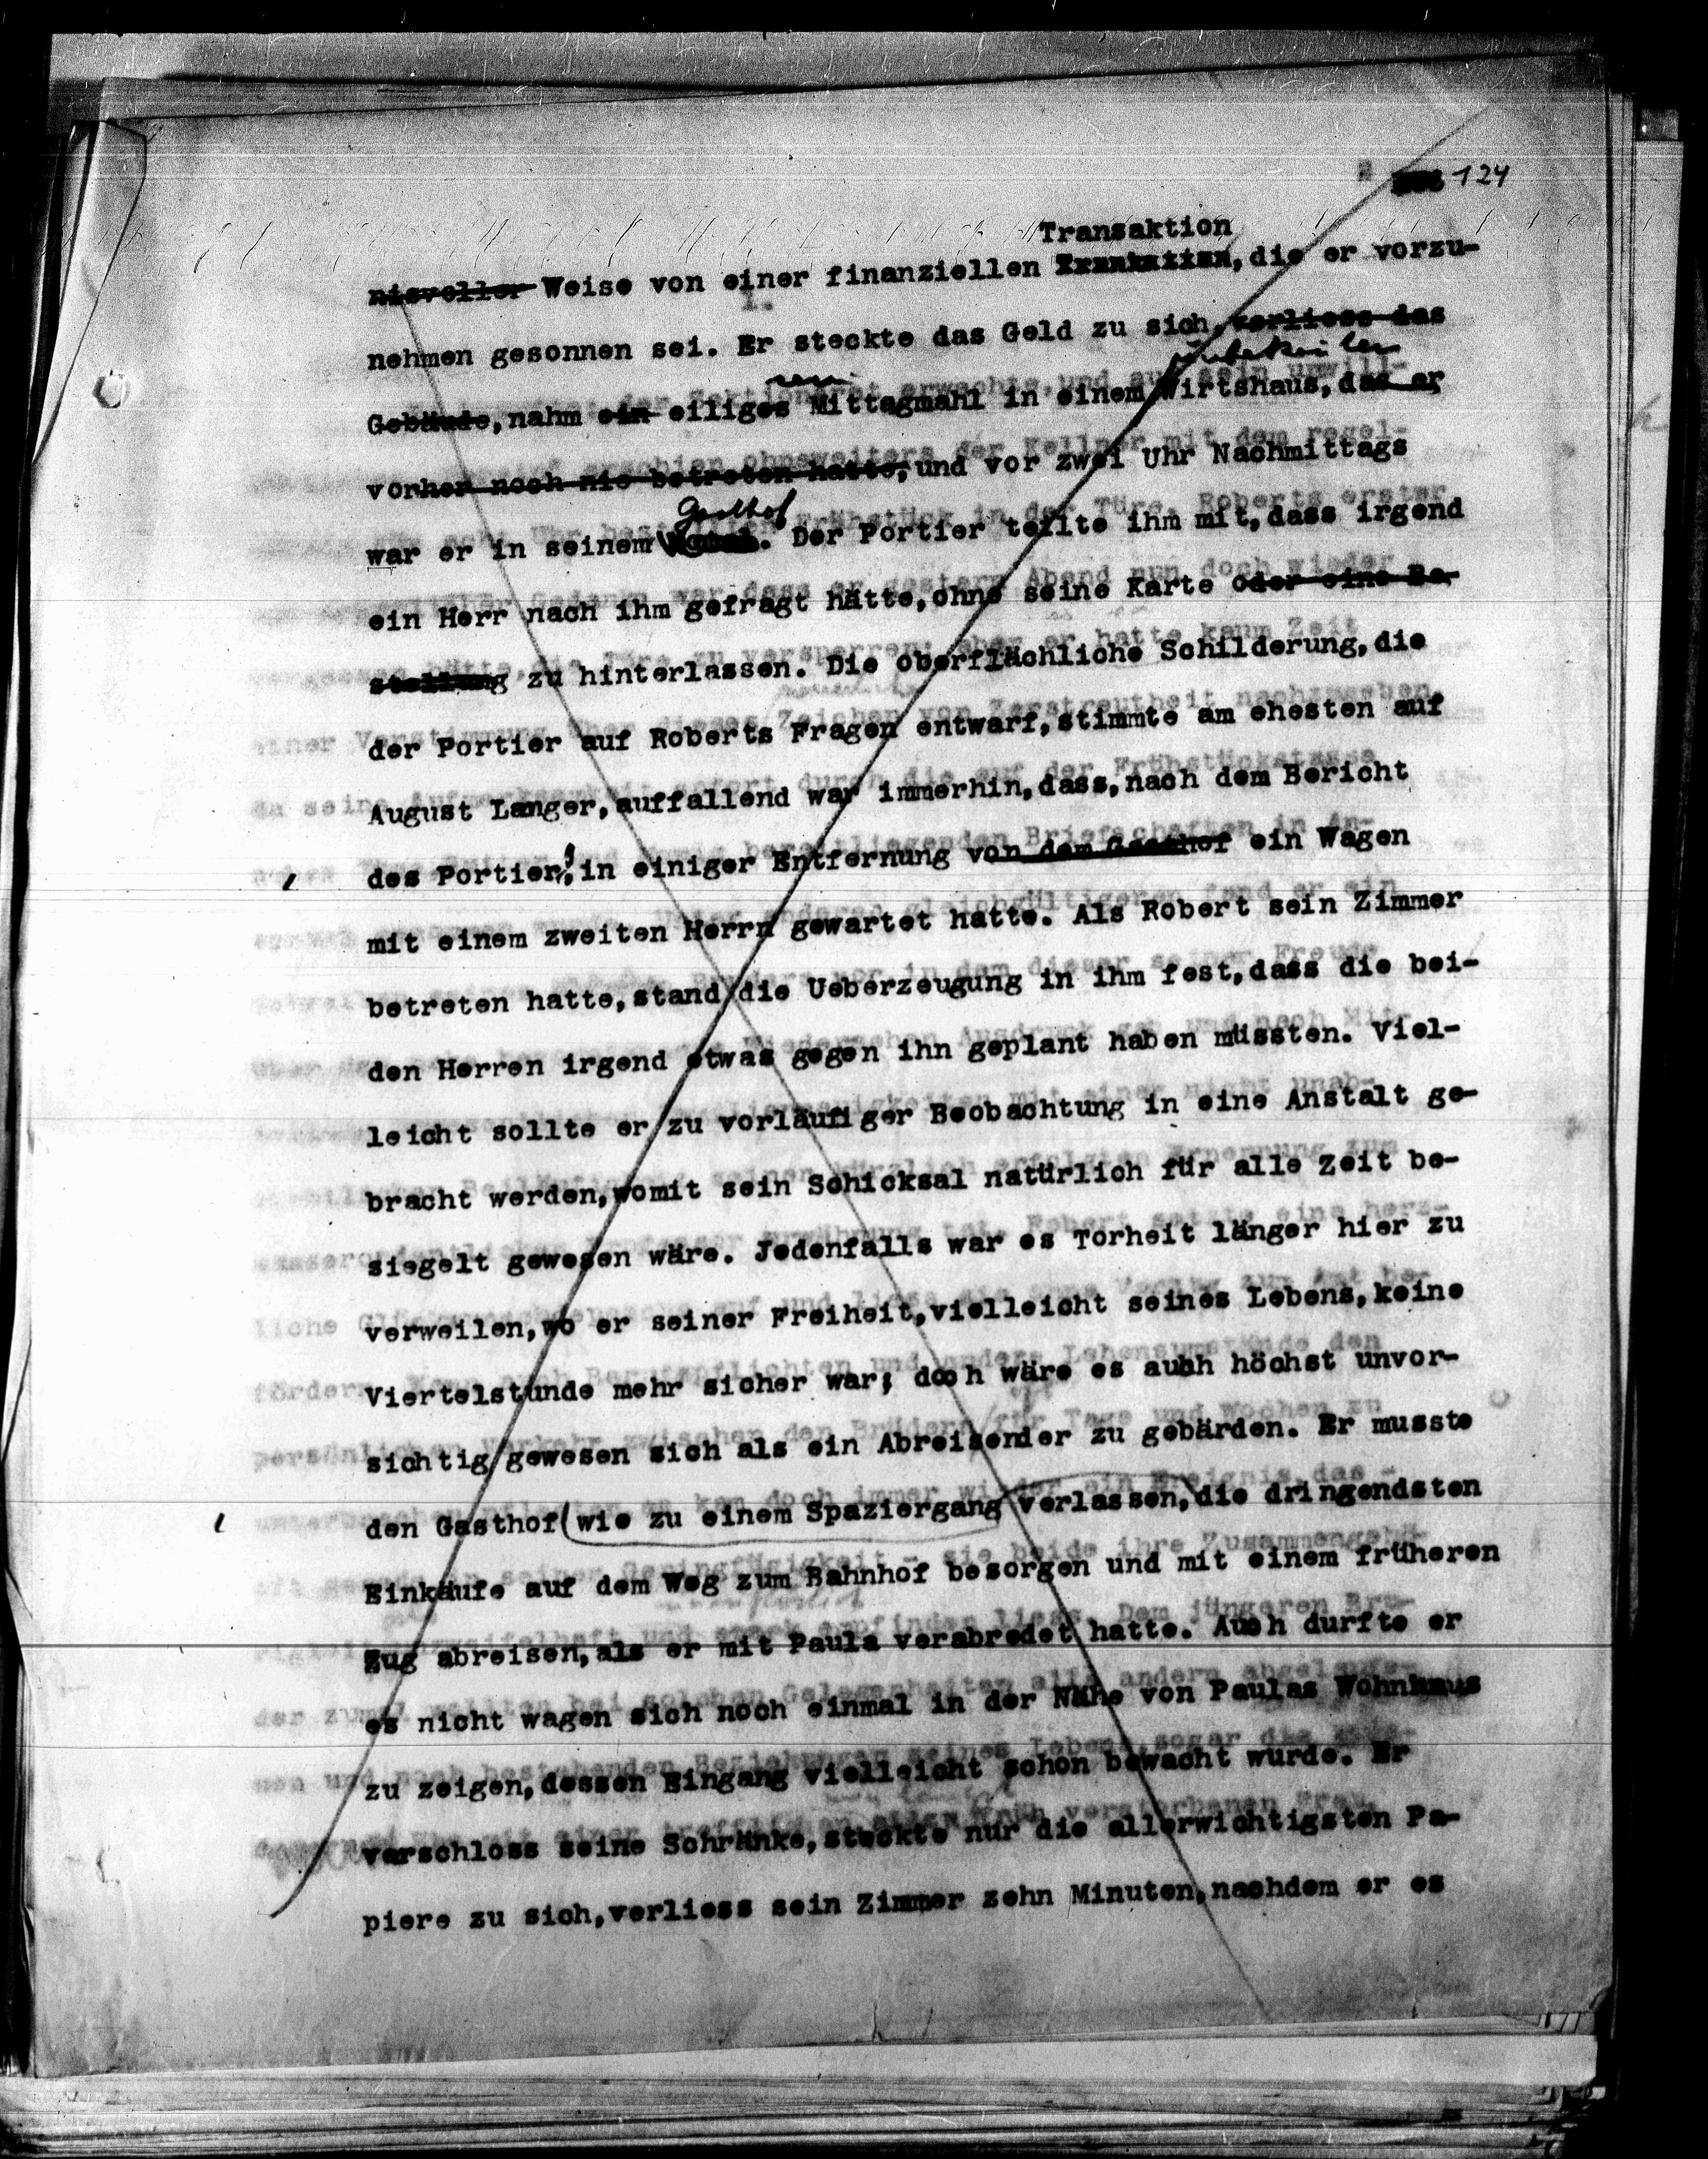 124
Transaktion
nisvoller Weise von einer finanziellen , die er vorzu-
nehmen gesonnen sei. Er steckte das Geld zu sich, verliess das
sein
Gebäude, nahm ein eiliges Mittagmahl in einem Wirtshaus, das er
vorher noch nie betreten hatte, und vor zwei Uhr Nachmittags
Gasthof
war er in seinem . Der Portier teilte ihm mit, dass irgend
ein Herr nach ihm gefragt hätte, ohne seine Karte oder eine Be-
stellung zu hinterlassen. Die oberflächliche Schilderung, die
der Portier auf Roberts Fragen entwarf, stimmte am ehesten auf
August Langer, auffallend war immerhin, dass, nach dem Bericht
des Portier, in einiger Entfernung von dem Gasthof ein Wagen
mit einem zweiten Herrn gewartet hatte. Als Robert sein Zimmer
betreten hatte, stand die Ueberzeugung in ihm fest, dass die bei-
den Herren irgend etwas gegen ihn geplant haben müssten. Viel-
leicht sollte er zu vorläufiger Beobachtung in eine Anstalt ge-
bracht werden, womit sein Schicksal natürlich für alle Zeit be-
siegelt gewesen wäre. Jedenfalls war es Torheit länger hier zu
verweilen, wo er seiner Freiheit, vielleicht seines Lebens, keine
Viertelstunde mehr sicher war; doch wäre es auch höchst unvor-
sichtig gewesen sich als ein Abreisender zu gebärden. Er musste
den Gasthof wie zu einem Spaziergang verlassen, die dringendsten
Einkäufe auf dem Weg zum Bahnhof besorgen und mit einem früheren
Zug abreisen, als er mit Paula verabredet hatte. Auch durfte er
es nicht wagen sich noch einmal in der Nähe von Paulas Wohnhaus
zu zeigen, dessen Eingang vielleicht schon bewacht wurde. Er
verschloss seine Schränke, steckte nur die allerwichtigsten Pa-
piere zu sich, verliess sein Zimmer zehn Minuten, nachdem er es